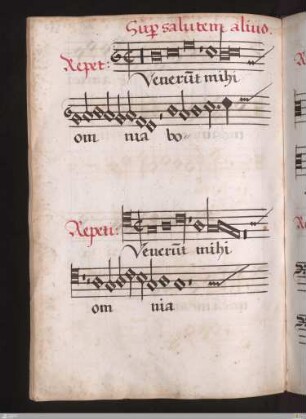 Sup̱ salutem aliud.
Repet:
Venerũt mihi
om nia bo
Repeti:
Venerũt mihi
om nia